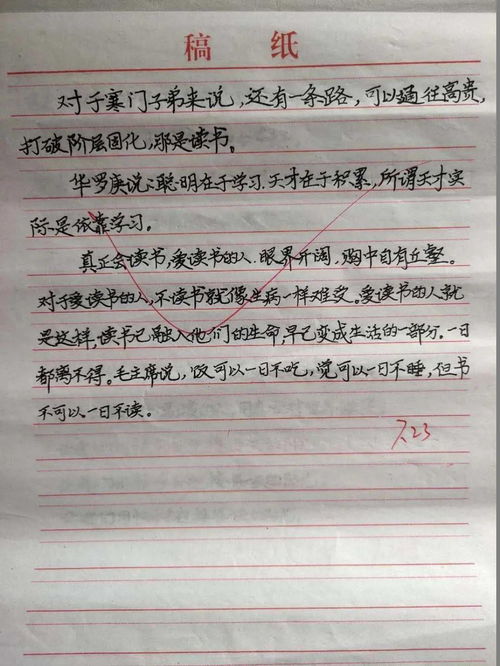 稿 纸
对于寒门子弟来说,还有一条路,可以通往高贵,
打破阶层固化,那是读书。
华罗庚说:聪明在于学习.天才在于积累,所谓天才实
际是依靠学习。
真正会读书,爱读书的人.眼界开阔,胸中自有丘壑。
对于爱读书的人,不读书就像生病一样难受。爱读书的人就
是这样,读书已融入他们的生命,早已变成生活的一部分.一日
都离不得。毛主席说,饭可以一日不吃,觉可以一日不睡,但书
不可以一日不读。
7.23